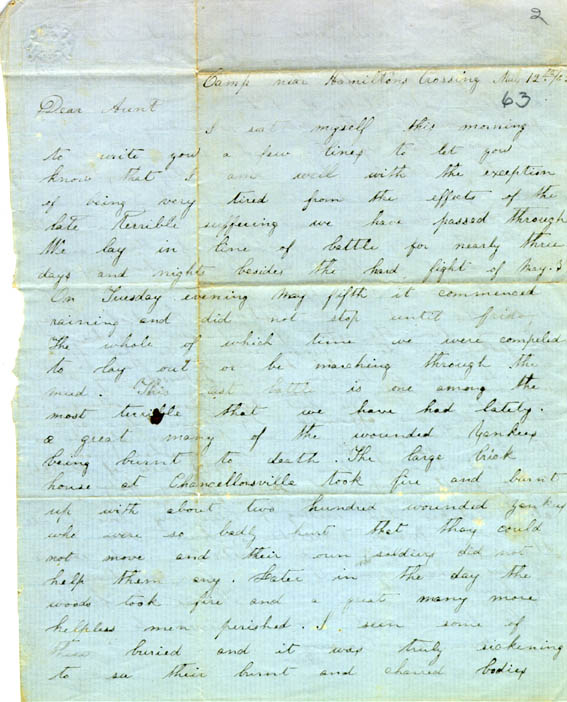 2
Camp near Hamiltons Crossing May 12th/63
63
Dear Aunt
I seat myself this morning
to write you a few lines to let you
know that I am well with the exception
of being very tired from the effects of the
late terrible suffering we have passed through
We lay in line of battle for nearly three
days and nights besides the hard fight of May 3
On Tuesday evening May fifth it commenced
raining and did not stop until friday
The whole of which time we were compeled
to lay out or be marching through the
mud. This last battle is one among the
most terrible that we have had lately.
a great many of the wounded Yankees
being burnt to death. The large brick
house at Chancellorsville took fire and burnt
up with about two hundred wounded yankys
who were so badly hurt that thay could
not move and their own soldiers did not
help them any. Later in the day the
woods took fire and a great many more
helpless men perished. I seen some of
buried and it was truly sickening
to see their burnt and charred bodies